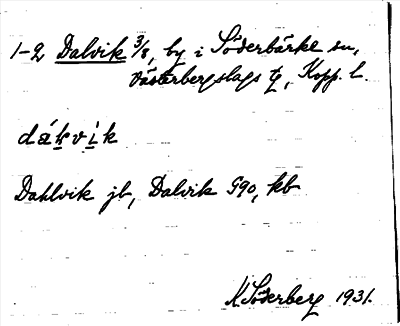 1-2 Dalvik 3/8, by i Söderbärke sn,
Västerbergslags tg, Kopp. l.
Dahlvik jb, Dalvik G90, kb
K Söderberg 1931.